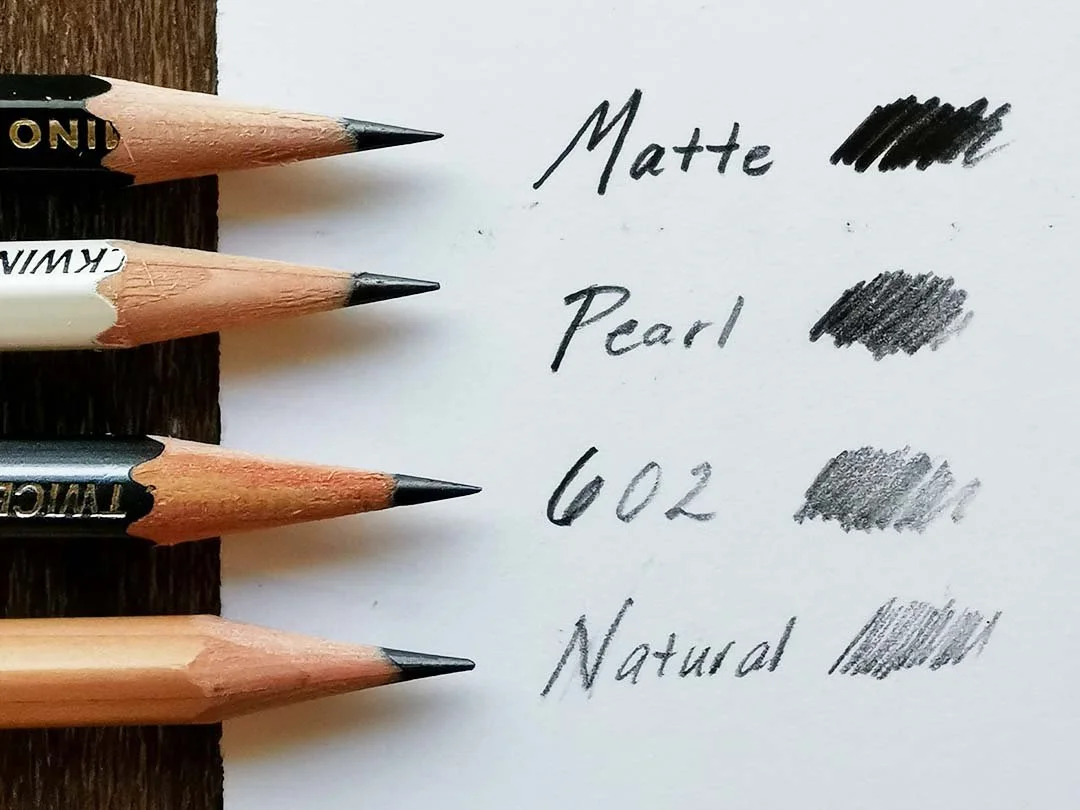 INO
Matte
CKWIN
Pearl
TWICE
602
Natural